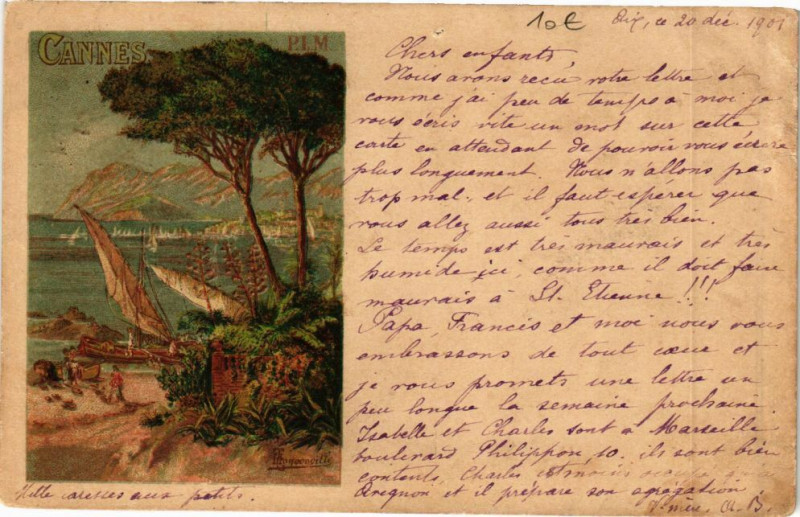 CANNES
P.L.M
10€
Aix, ce 20 déc. 1901
Chers enfants,
Nous avons reçu votre lettre et
comme j'ai peu de temps à moi je
vous écris vite un mot sur cette
carte en attendant de pouvoir vous écrire
plus longuement. Nous n'allons pas
trop mal, et il faut espérer que
vous allez aussi tous très bien.
Le temps est très mauvais et très
humide ici, comme il doit faire
mauvais à St. Etienne !!!
Papa, Francis et moi nous vous
embrassons de tout cœur et
je vous promets une lettre un
peu longue la semaine prochaine.
Isabelle et Charles sont à Marseille
boulevard Philippon 10. ils sont bien
contents, Charles est moins
Avignon et il prépare son agrégation.
Mille caresses aux petits.